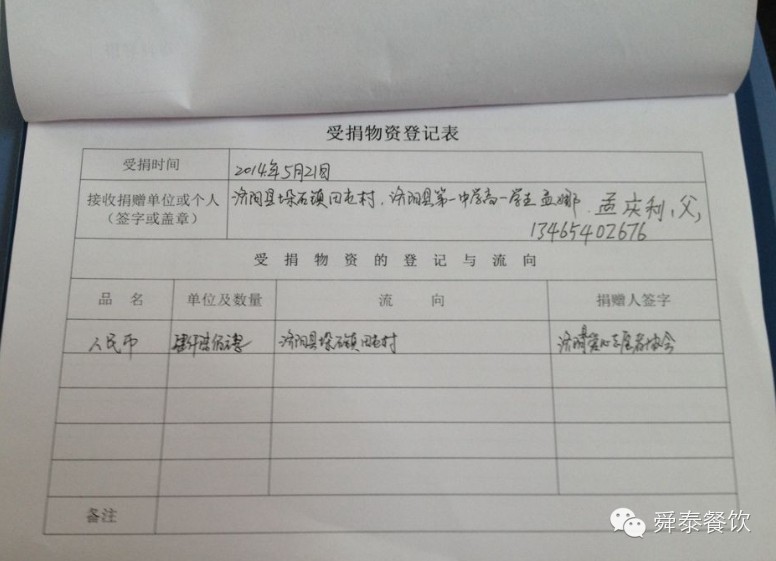 受捐物资登记表
受捐时间 2014年5月21日
接收捐赠单位或个人 济阳县垛石镇 村. 济阳县第一中学高一学生孟娜. 孟庆利,父,
(签字或盖章) 13465402676
受捐物资的登记与流向
品名 单位及数量 流向 捐赠人签字
人民币 济阳县垛石镇 村 济阳县爱心志愿者协会
备注
舜泰餐饮